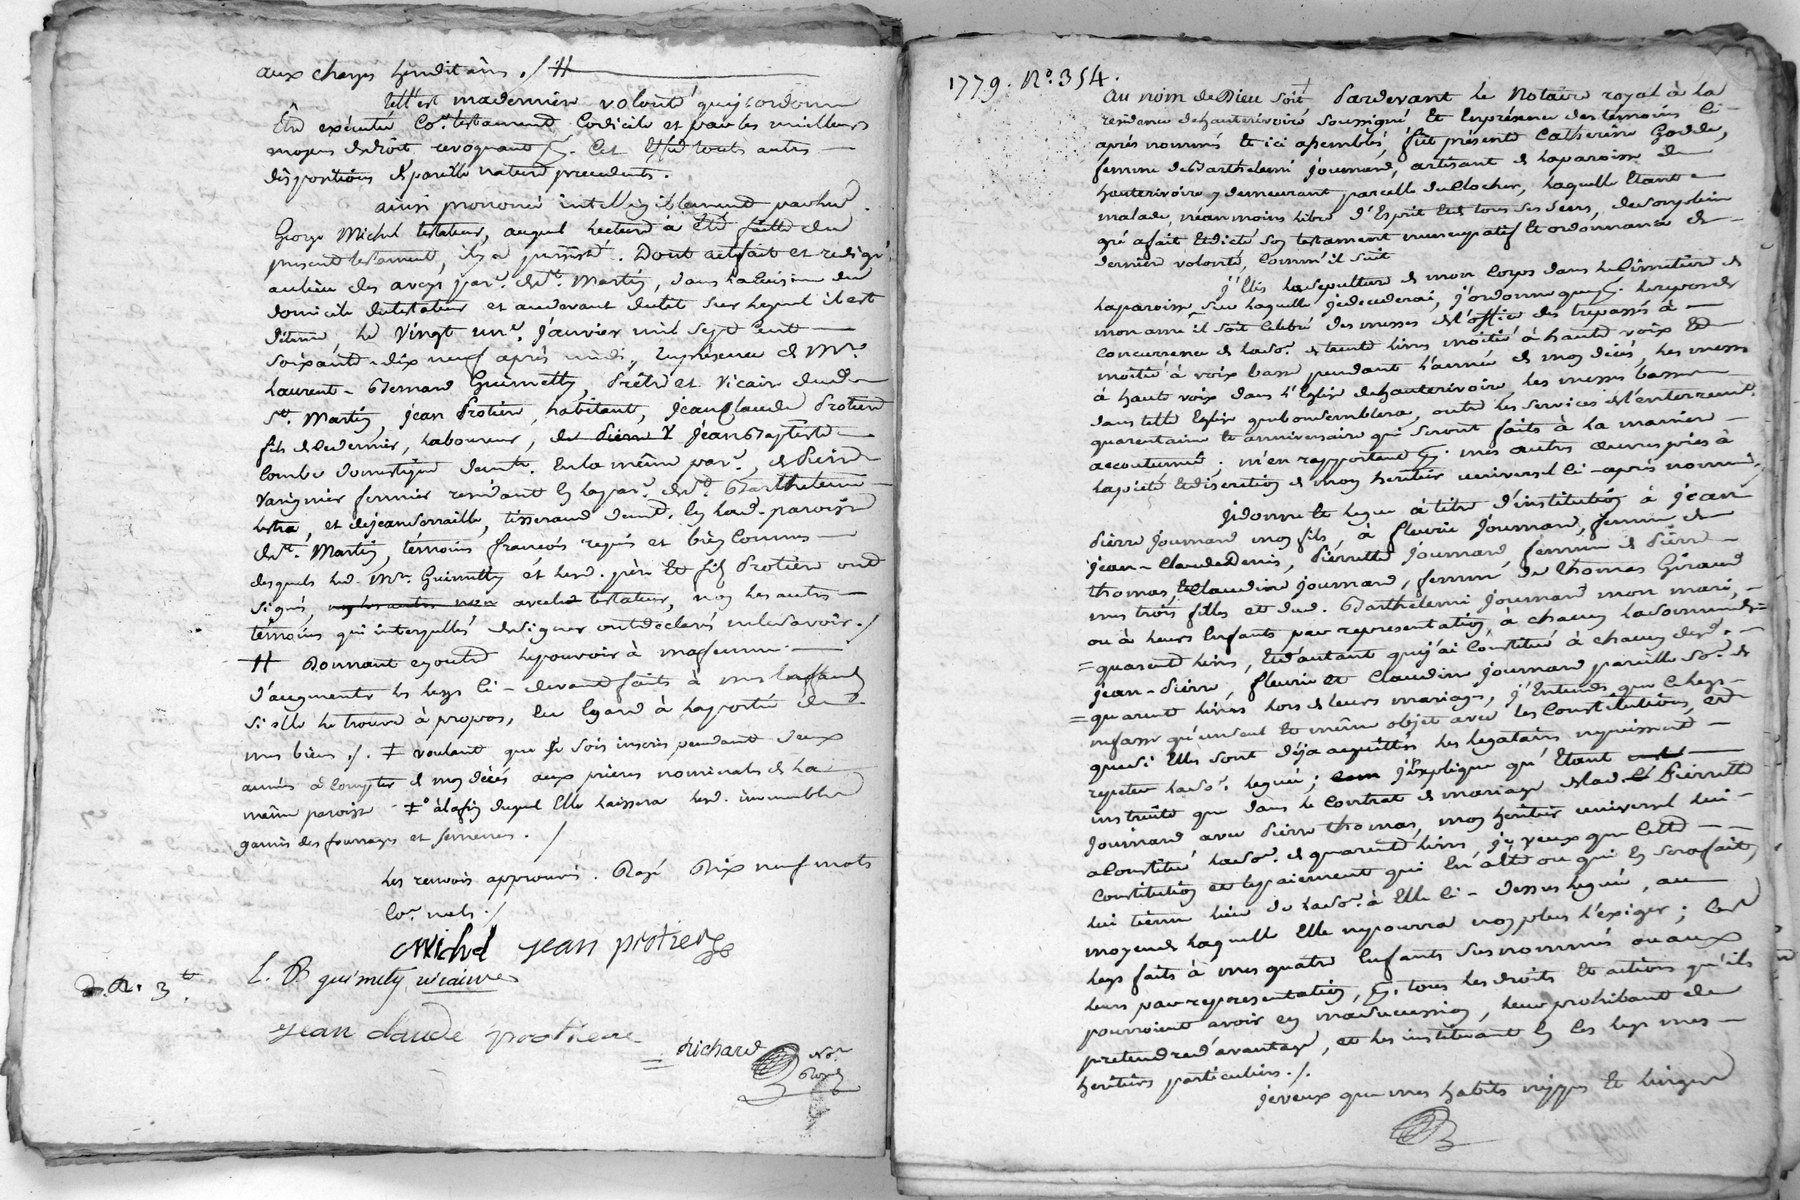 aux charges héréditaires ./ #
tell'est ma derniere volonté que j'ordonne
Être exécutée Co.e testament, Codicile et par les meilleurs
moyens de droit revoquant Cet Effet touts autres
dispositions de pareille nature precedents.
ainsi prononcé intelligiblement par led.
George Michel testateur, auquel lecture a été faitte du
present testament, il y a persisté. Dont acte fait et redigé
au lieu des par. de St. Martin, dans la cuisine du
domicile du testateur et au devant du lit sur lequel il est
détenu, le Vingt un.e Janvier mil sept cent
soixante-dix neuf après midi, En presence de Mre.
Laurent-Bernard Guimetty, Prêtre et Vicaire dud.
St. Martin, Jean Protiere, habitant, Jean Claude Protiere
fils de ce dernier, laboureur, de Pierre Jean Baptiste
Combe domestique dem.t En la même par., de Pierre
Varignier fermier residant En la par. de St. Barthelemi
Lestra, et de Jean Sorraille, tisserand dem.t En lad. paroisse
de St. Martin, témoins françois requis et bien Connus
desquels led. Mre. Guimetty et lesd. père Et fils Protiere ont
signés, avec led. testateur, non les autres
témoins qui interpellés de signer ont declarés ne le savoir ./
# Donnant en outre le pouvoir à ma femme
d'augmenter les legs Ci-devant faits à mes Enfants
si elle le trouve à propos, Eu Egard à la portée de
mes biens ./. ‡ voulant que je sois inscris pendant deux
années à Compter de mon décés aux prieres nominales de la
même paroisse ‡° à la fin duquel Elle laissera lesd. immeubles
garnis des fourrages et semences. /
les renvois approuvés. Rayé Dix neuf mots
Co.e nuls ./
Michel Jean protiere
D. R. 3tt.
L. B guimety vicaire
Jean claude protiere
Richard No.re Royal
1779. No. 354.
Au nom de Dieu soit Pardevant le Notaire royal à la
residence de hauterivoire soussigné Et En presence des temoins Ci-
aprés nommés Et ici assemblés, fut présente Catherine Godde,
femme de Barthelemi Journard, artisant de la paroisse de
hauterivoire y demeurant parcelle du Clocher, laquelle Etant
malade, néanmoins libre d'Esprit Et de tous ses sens, de son plein
gré a fait Et dicté son testament nuncupatif Et ordonnance de
derniere volonté, Comm'il suit
J'Elis la sepulture de mon Corps dans le Cimetiere de
la paroisse sur laquelle je decederai, j'ordonne que le repos de
mon ame il soit Celebré des messes de l'office des trepassés à
Concurrence de la so.e de trente livres moitié à haute voix Et
moitié à voix basse pendant l'année de mon décés, les messes
à haute voix dans l'Eglise de hauterivoire, les messes basses
dans telle Eglise que bon semblera, outre les services de l'enterrem.t
quarantaine Et anniversaire qui seront faits à la maniere
accoutumée; m'en rapportant mes autres œuvres pies à
la piété Et discretion de mon heritier universel Ci-après nommé,
Je donne Et legue à titre d'institution à Jean
Pierre Journard mon fils, à fleurie Journard, femme de
Jean-Claude Denis, Pierrette Journard, femme de Pierre
thomas, Et Claudine Journard, femme de thomas Giraud
mes trois filles et dud. Barthelemi Journard mon mari,
ou à leurs Enfants par representation, à chacun la somme de
quarante livres, Et d'autant que j'ai Constitué à chacun desd.
Jean-Pierre, fleurie Et Claudine Journard pareille so.e de
quarante livres lors de leurs mariages, j'Entends que Ce legs
ne fasse qu'un seul Et même objet avec les Constitutions, et
que si Elles sont déja acquittées les legataires ne puissent
repeter lad. so.e leguée; j'Explique qu'étant
instruite que dans le Contrat de mariage de lad. Pierrette
Journard avec Pierre thomas, mon heritier universel lui
a Constitué la so.e de quarante livres, je veux que Cette
Constitution et le payement qui En a été ou qui En sera fait,
lui tienne lieu de la so.e à Elle Ci-dessus leguée, au
moyen de laquelle Elle ne pourra non plus l'exiger; Ces
legs faits à mes quatre Enfants susnommés ou aux
leurs par representation, tous les droits Et actions qu'ils
pourroient avoir en ma succession, leur prohibant de
pretendre d'avantage, et les instituant En Ces legs mes
heritiers particuliers ./.
Je veux que mes habits nippes Et linges